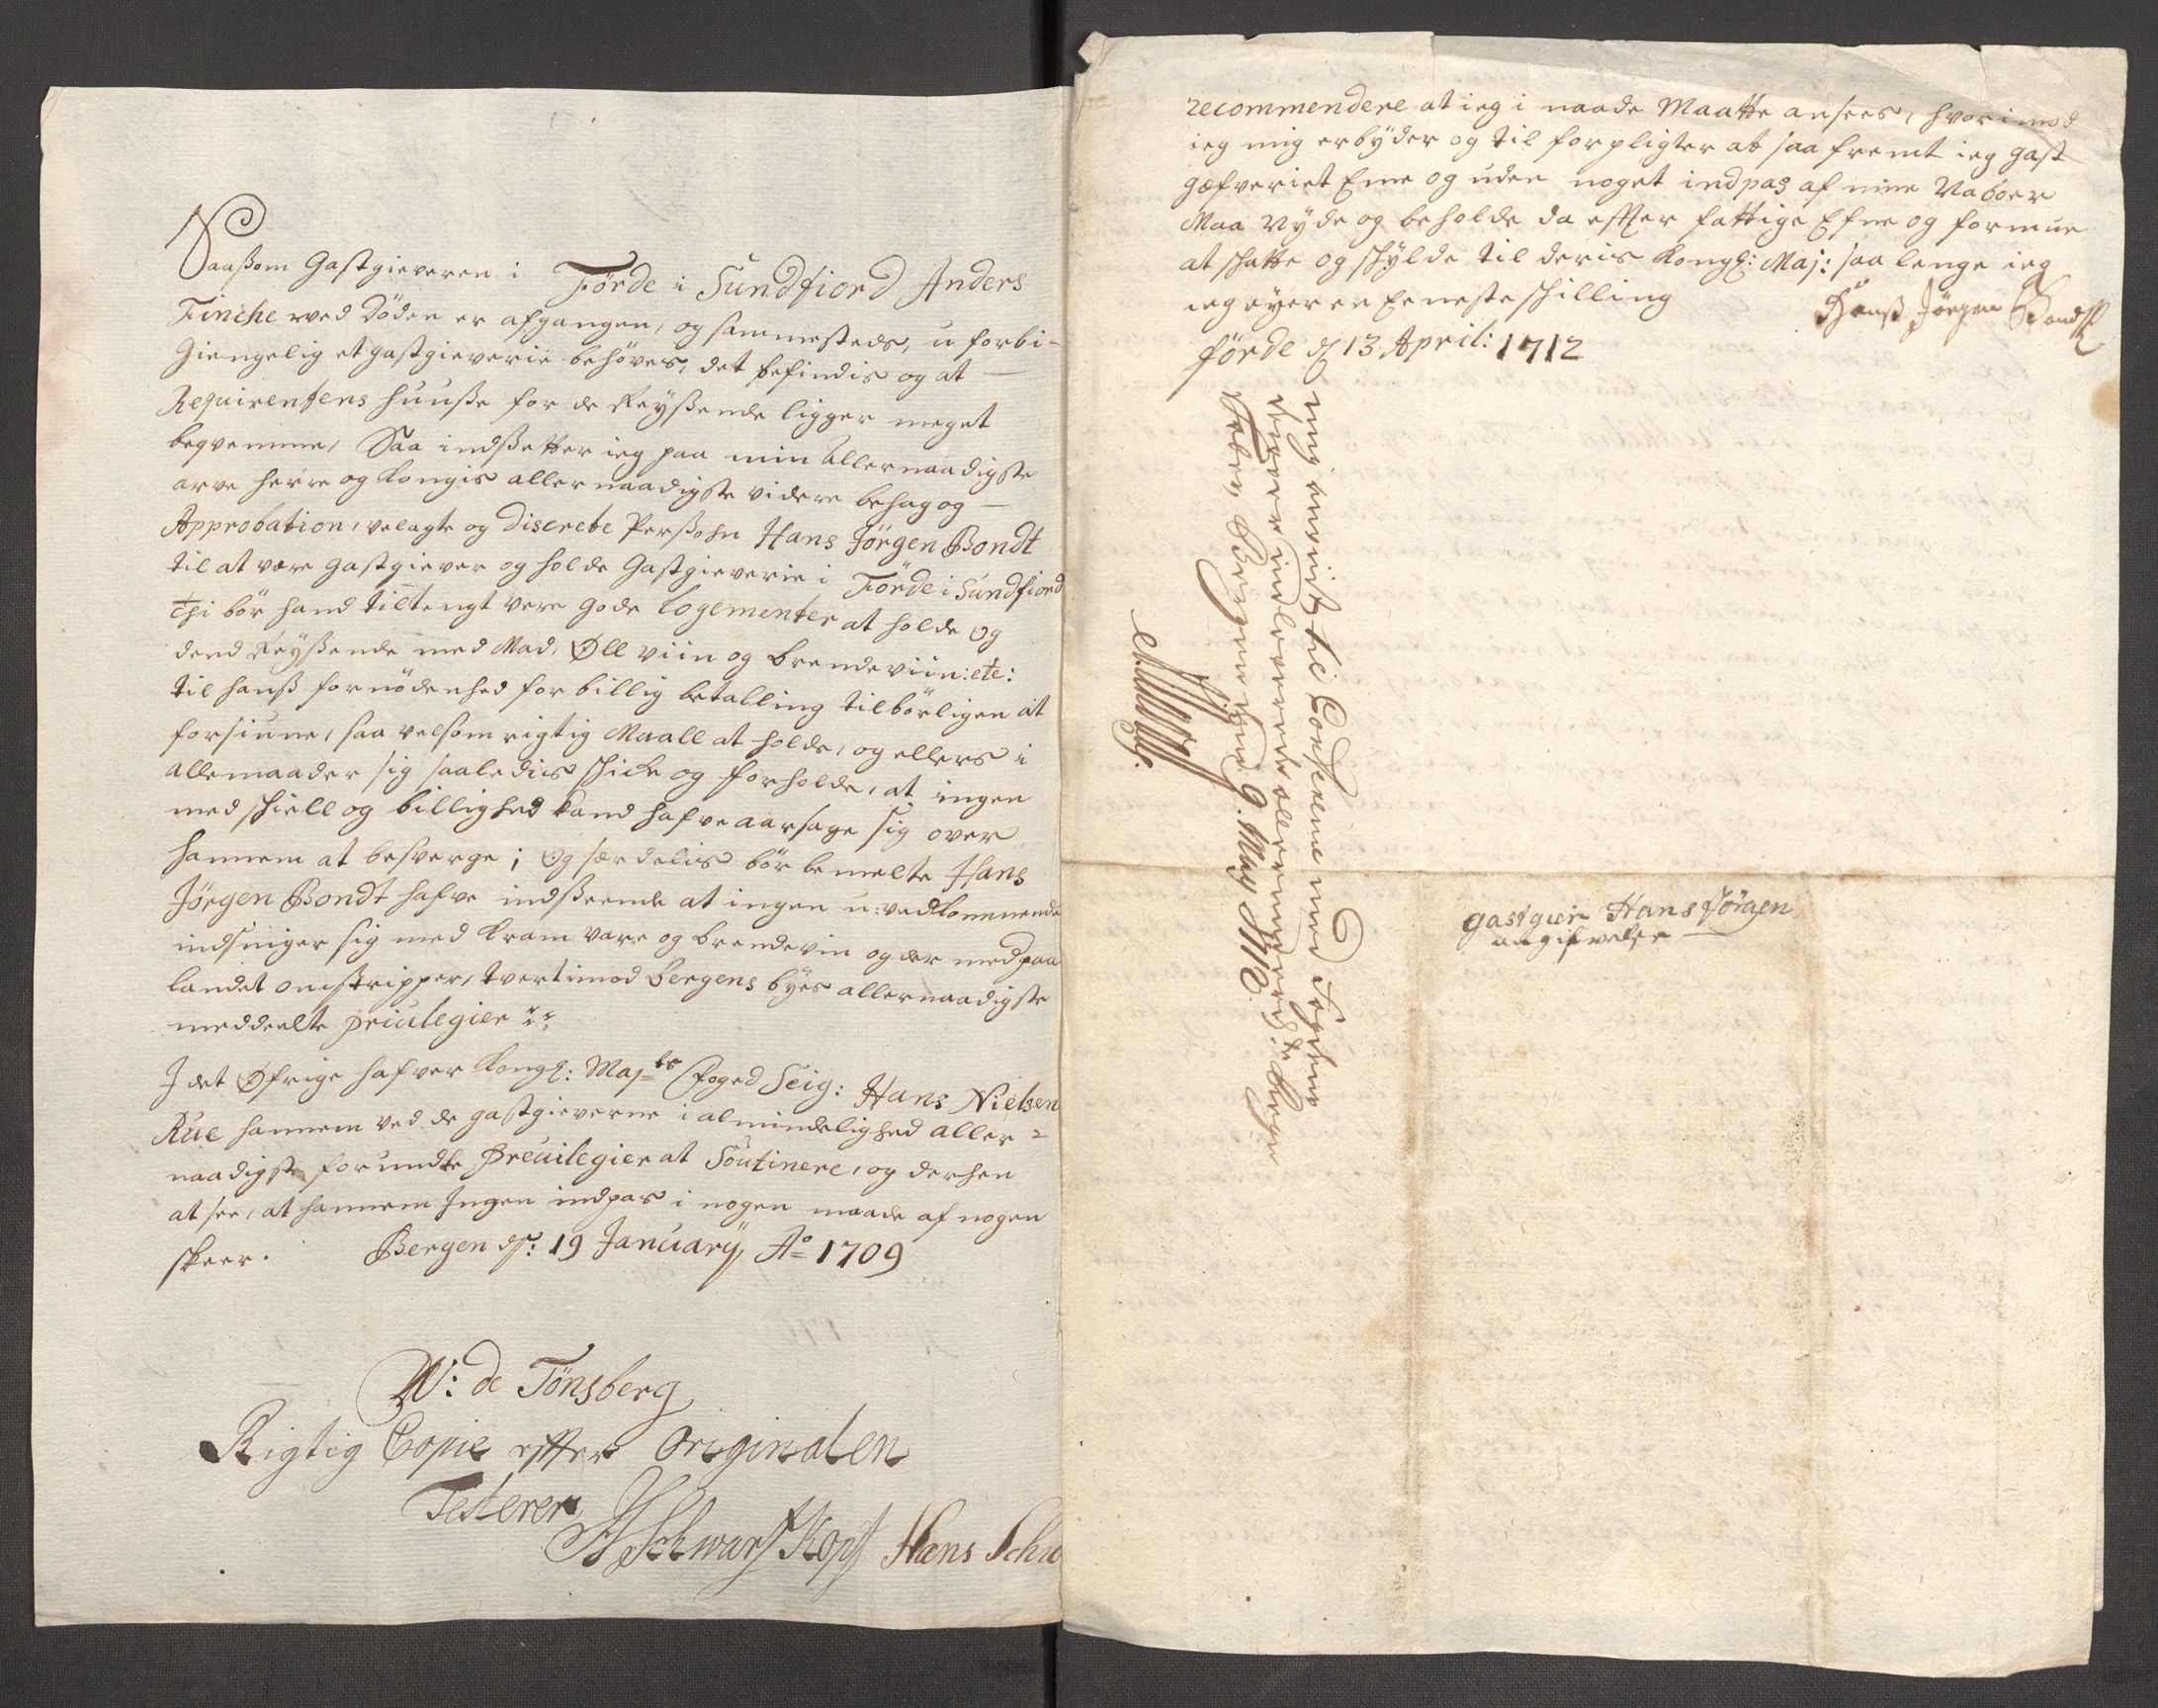 Saaßom Gastgieveren i Förde i Sundfiord Anders
Finche ved Döden er afgangen, og sammesteds, u forbi-
giengelig et gastgieverie behöves, det befindis og at
Requirentens huuße for de Reyßende ligger meget
beqvemme, Saa indßetter ieg paa min Allernaadigste
arve herre og Kongis allernaadigste videre behag og
Approbation, velagte og Discrete Perßohn Hans Jörgen Bondt
til at være gastgiever og holde Gastgieverie i Förde i Sundfiord
Thi bör hand tiltengt vere gode Logementer at holde og
dend Reyßende med Mad, Øll viin og brendeviin: etc:
til hanß fornödenhed for billig betalling tilbörligen at
forsiune, saa velsom rigtig Maall at holde, og ellers i
alle maader sig saaledis schicke og forholde, at ingen
med schiell og billighed kand hafve aarsage sig over
hannem at besverge; Og særdelis bör bemelte Hans
Jörgen Bondt hafve indßeende at ingen u:vedkommende
indsniger sig med kram vare og brendevin og der med paa
landet omstripper, tvert imod Bergens byes allernaadigste
meddeelte priulegier
J det Øfrige hafver Kongl: Majts foged Seig: Hans Nielsen
Rue hannem ved de gastgieverne i almindelighed aller=
naadigste forundte Preuilegier at Soutinere, og derhen
at see, at hannem Jngen indpas i nogen maade af nogen
skeer. Bergen d: 19 January Ao 1709
W: de Tönsberg
Rigtig Copie effter Originalen
Testerer
Schwartzkopf Hans Schu
recommendere at ieg i naade Maatte ansees, hvorimod
ieg mig erbyder og til forpligter at saa fremt ieg gast
gæfveriet Eene og uden noget indpas af mine Naboer
Maa Nyde og beholde da effter fattige Efne og formue
at schatte og schylde til deris Kongl: Maj: saa lenge ieg
ieg eyer en Eeneste schilling
Hanß Jörgen Bondt
förde d 13 April: 1712
mig med
9. May 1712.
gastgier Hans Jörgen
angifvelse